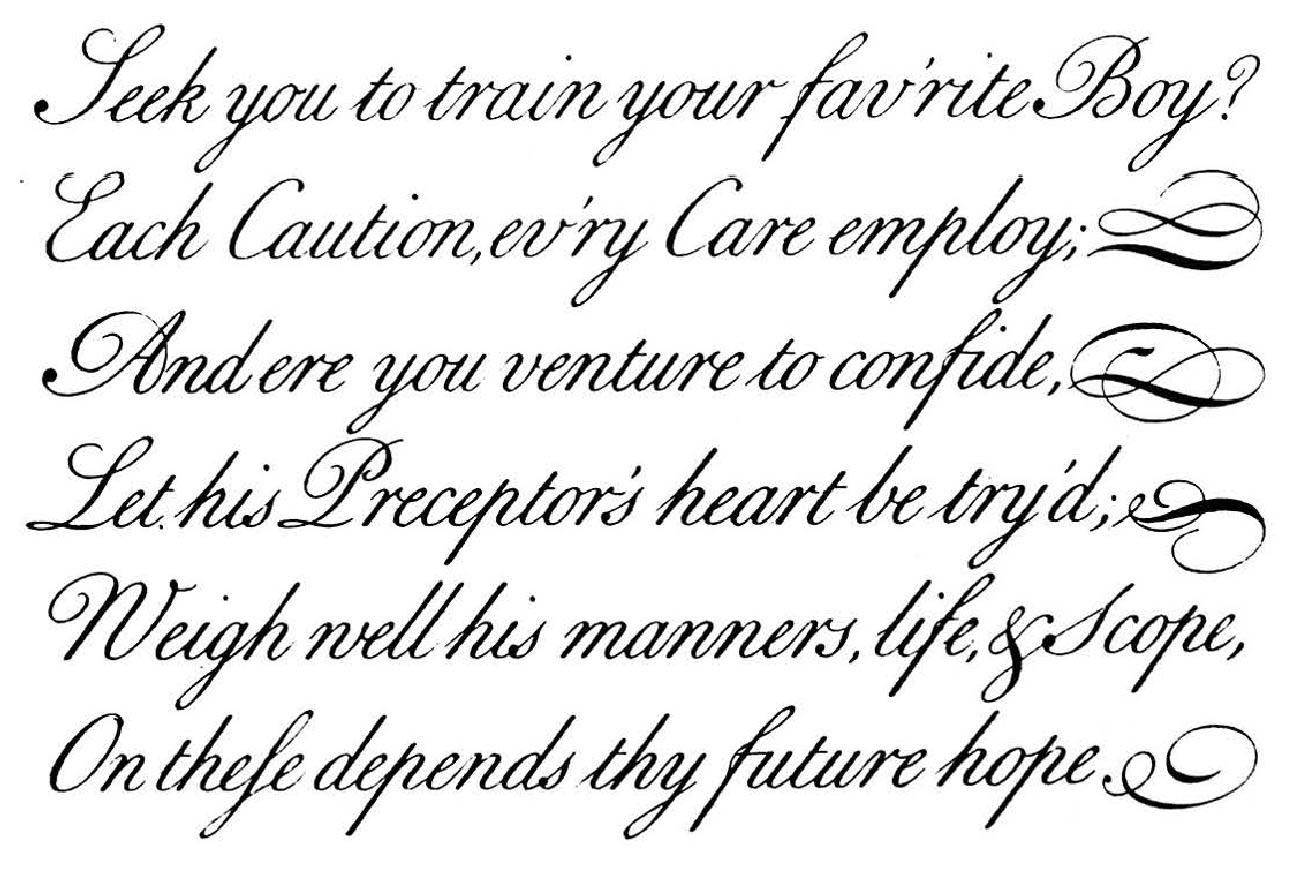 Seek you to train your fav'rite Boy?
Each Caution, ev'ry Care employ;
And ere you venture to confide,
Let his Preceptor's heart be try'd;
Weigh well his manners, life, & Scope,
On theſe depends thy future hope.